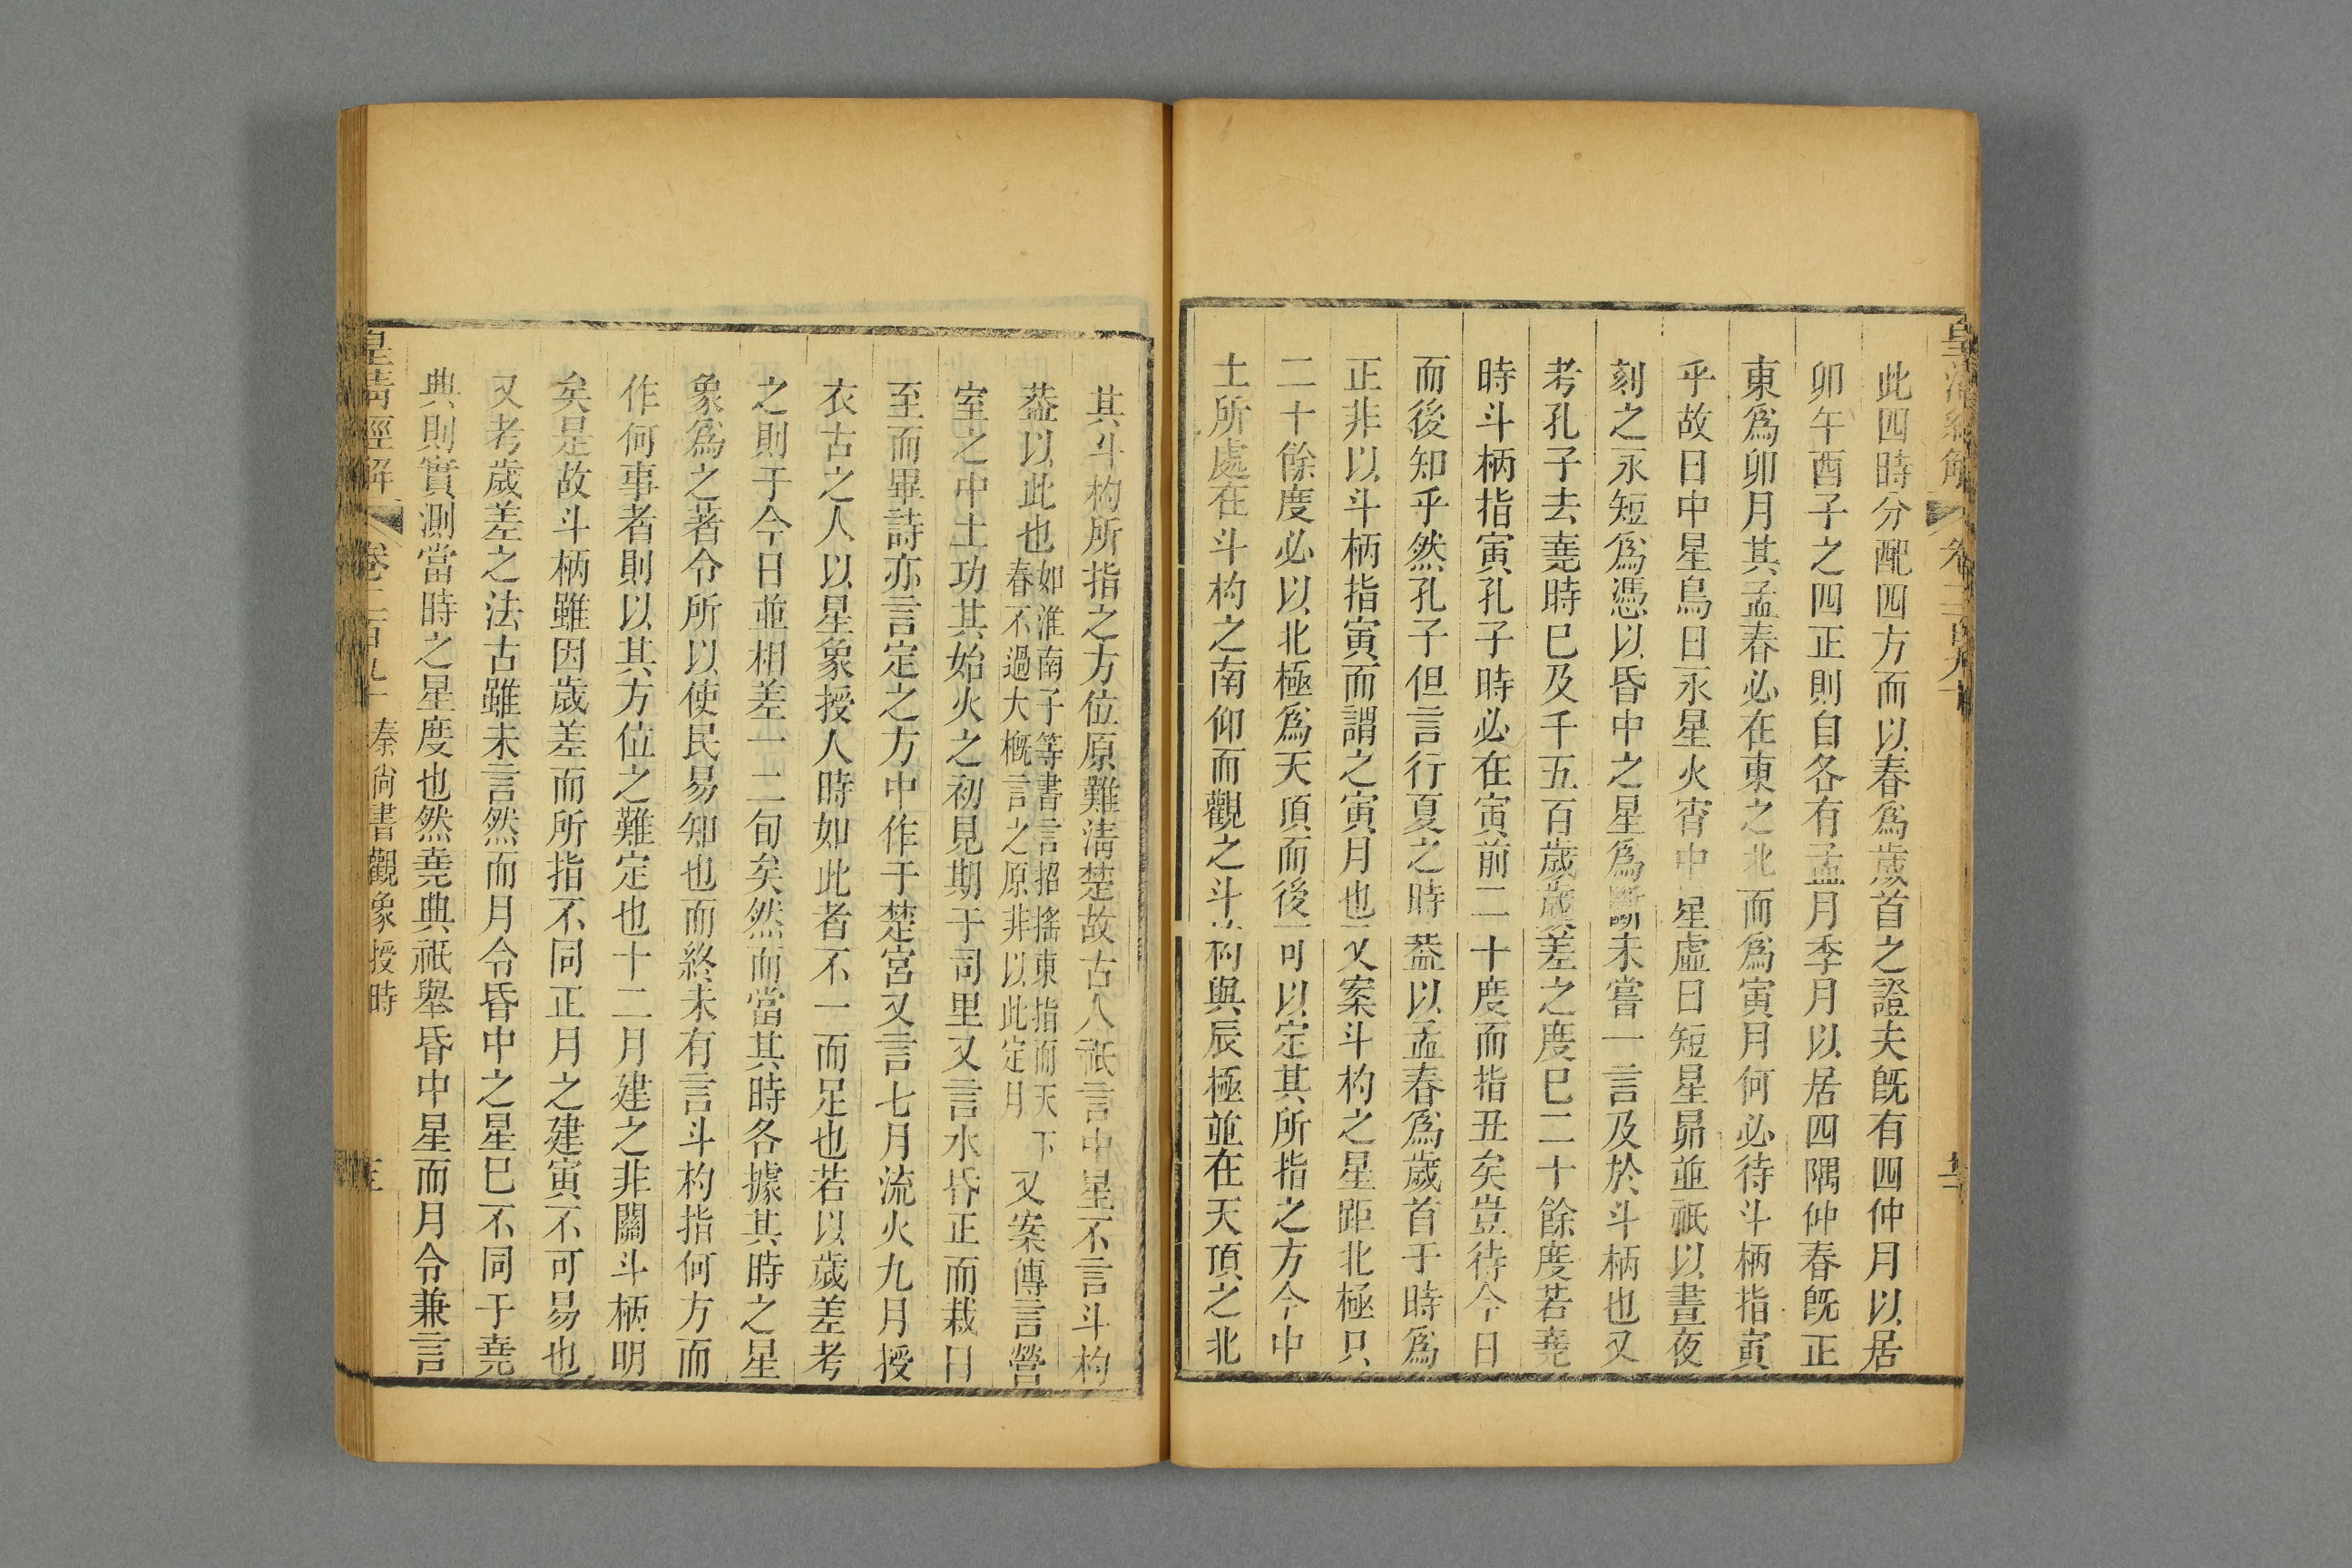 此四時分配四方而以春爲歲首之證夫旣有四仲月以居
卯午酉子之四正則自各有孟月季月以居四隅仲春旣正
東爲卯月其孟春必在東之北而爲寅月何必待斗柄指寅
乎故日中星鳥日永星火宵中星虛日短星昴並祇以晝夜
刻之永短爲憑以昏中之星爲斷未嘗一言及於斗柄也又
考孔子去堯時巳及千五百歲歲差之度巳二十餘度若堯
時斗柄指寅孔子時必在寅前二十度而指丑矣豈待今日
而後知乎然孔子但言行夏之時葢以孟春爲歲首于時爲
正非以斗柄指寅而謂之寅月也又案斗杓之星距北極只
二十餘度必以北極爲天頂而後可以定其所指之方今中
土所處在斗杓之南仰而觀之斗杓與辰極並在天頂之北
其斗杓所指之方位原難淸楚故古人祇言中星不言斗杓
葢以此也如淮南子等書言招搖東指而天下春不過大槪言之原非以此定月又案傳言營
室之中土功其始火之初見期于司里又言水昏正而栽日
至而畢詩亦言定之方中作于楚宮又言七月流火九月授
衣古之人以星象授人時如此者不一而足也若以歲差考
之則于今日並相差一二旬矣然而當其時各據其時之星
象爲之著令所以使民易知也而終未有言斗杓指何方而
作何事者則以其方位之難定也十二月建之非關斗柄明
矣是故斗柄雖因歲差而所指不同正月之建寅不可易也
又考歲差之法古雖未言然而月令昏中之星巳不同于堯
典則實測當時之星度也然堯典祇舉昏中星而月令兼言
皇淸經解 卷二百九十 秦尙書觀象授時